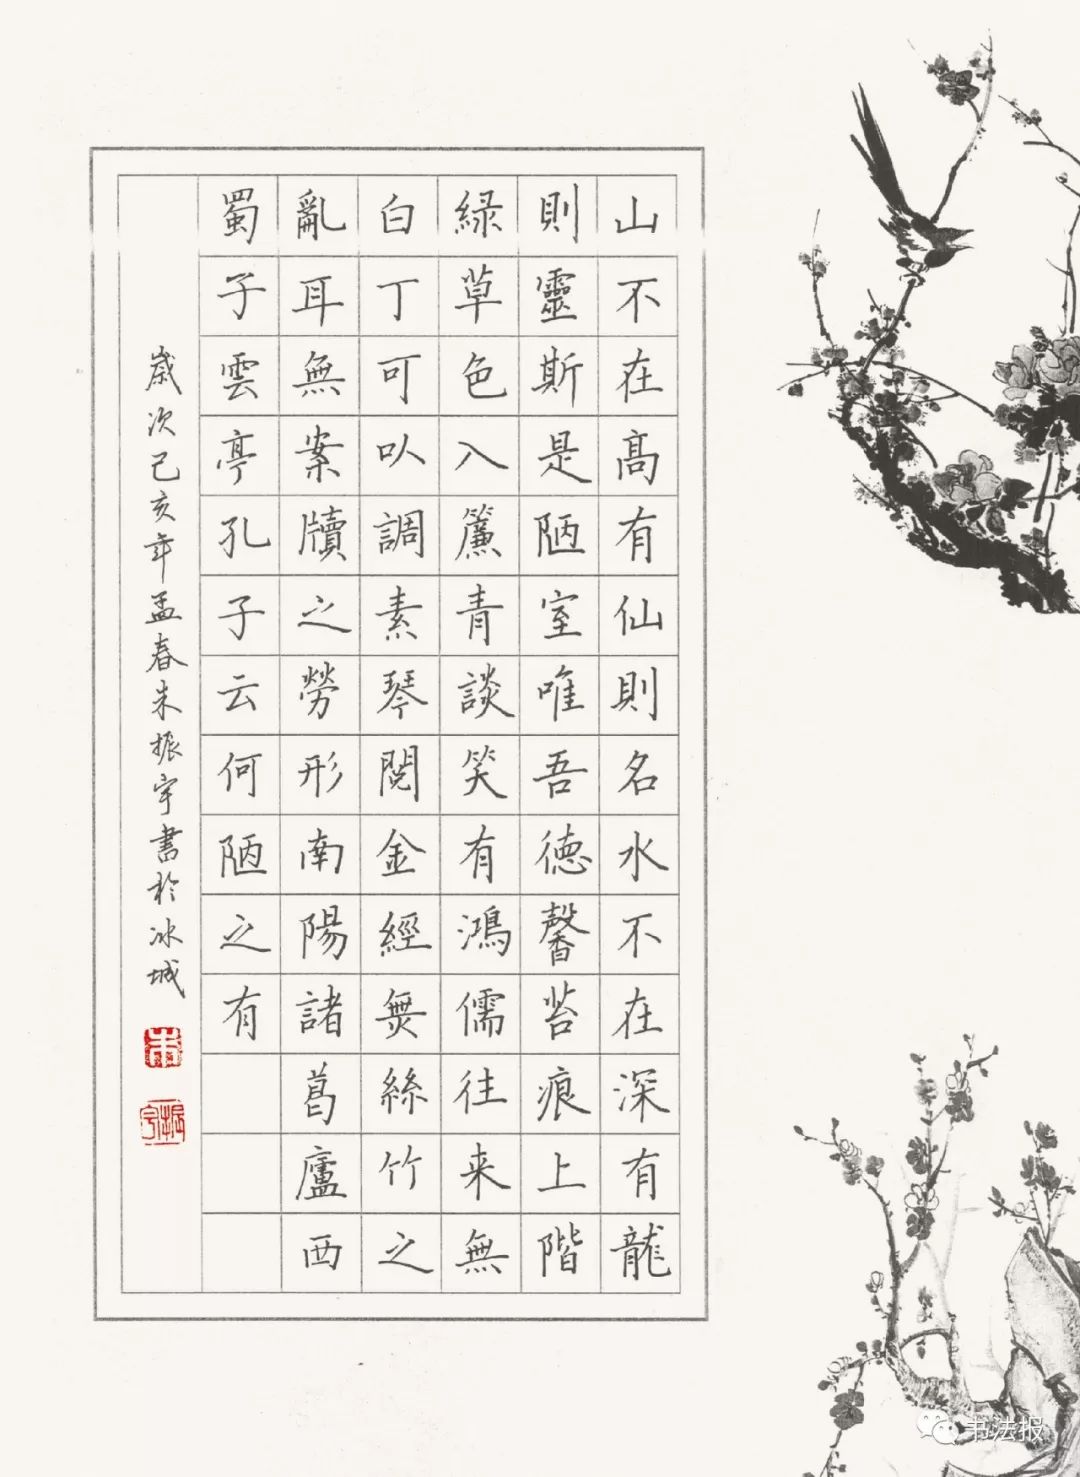 山不在高有仙則名水不在深有龍
則靈斯是陋室唯吾德馨苔痕上階
緑草色入簾青談笑有鴻儒往来無
白丁可以調素琴閲金經無絲竹之
亂耳無案牘之勞形南陽諸葛廬西
蜀子雲亭孔子云何陋之有
歲次己亥年孟春朱振宇書於冰城
朱
振宇
书法报